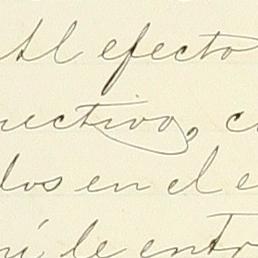 Al efecto
rectivo, c
dos en el e
ní le entr